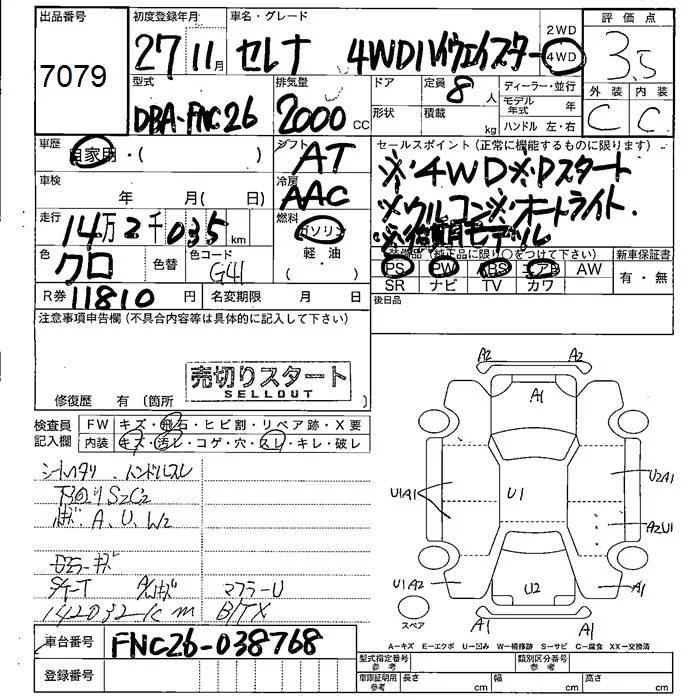 出品番号
7079
初度登録年月
27 11月
車名・グレード
セレナ 4WDハイウェイスター
2WD
4WD
評価点
3.5
型式
DBA-FNC26
排気量
2000 CC
ドア
形状
定員
8人
積載
kg
ディーラー・並行
モデル年式 年
ハンドル 左・右
外装 内装
C C
車歴
自家用・( )
シフト
AT
車検
年 月( 日)
冷房
AAC
走行
14万2千035km
燃料
ガソリン
軽・油
( )
色
クロ
色替
色コード
G41
R券 11810円
名変期限 月 日
セールスポイント(正常に機能するものに限ります)
※4WD※Pスタート
※クルコン※オートライト.
モデル
装備品(純正品に限り○をつけて下さい)
PS PW ABS エアB AW
SR ナビ TV カワ
新車保証書
有・無
後日品
注意事項申告欄(不具合内容等は具体的に記入して下さい)
売切りスタート
SELLOUT
修復歴 有(箇所 )
検査員記入欄
FW キズ・飛石・ヒビ割・リペア跡・X要
内装 キズ・汚レ・コゲ・穴・スレ・キレ・破レ
シートヘタリ . ハンドルスレ
下回りS2C2
A、U、W2
キズ
マフラーU
142032km B/TX
A2 A2
A1
U1A1
U1
U2A1
A2U1
U1A2
U2
A1
A1 A1
スペア
A-キズ E-エクボ U-凹み W-補修跡 S-サビ C-腐食 XX-交換済
車台番号 FNC26-038768
登録番号
型式指定番号 参考
類別区分番号 参考
車庫証明用 参考
長さ cm 幅 cm 高さ cm